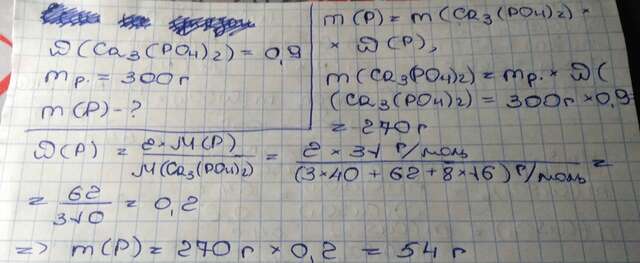 D(Ca3(PO4)2) = 0,9
mр. = 300г
m(P) - ?
m(P) = m(Ca3(PO4)2) ×
× D(P),
m(Ca3(PO4)2) = mр. × D(
(Ca3(PO4)2) = 300г × 0,9
= 270г
D(P) = 2×M(P) / M(Ca3(PO4)2) = 2 × 31 г/моль / (3×40 + 62 + 8×16) г/моль =
= 62 / 310 = 0,2
=> m(P) = 270г × 0,2 = 54г